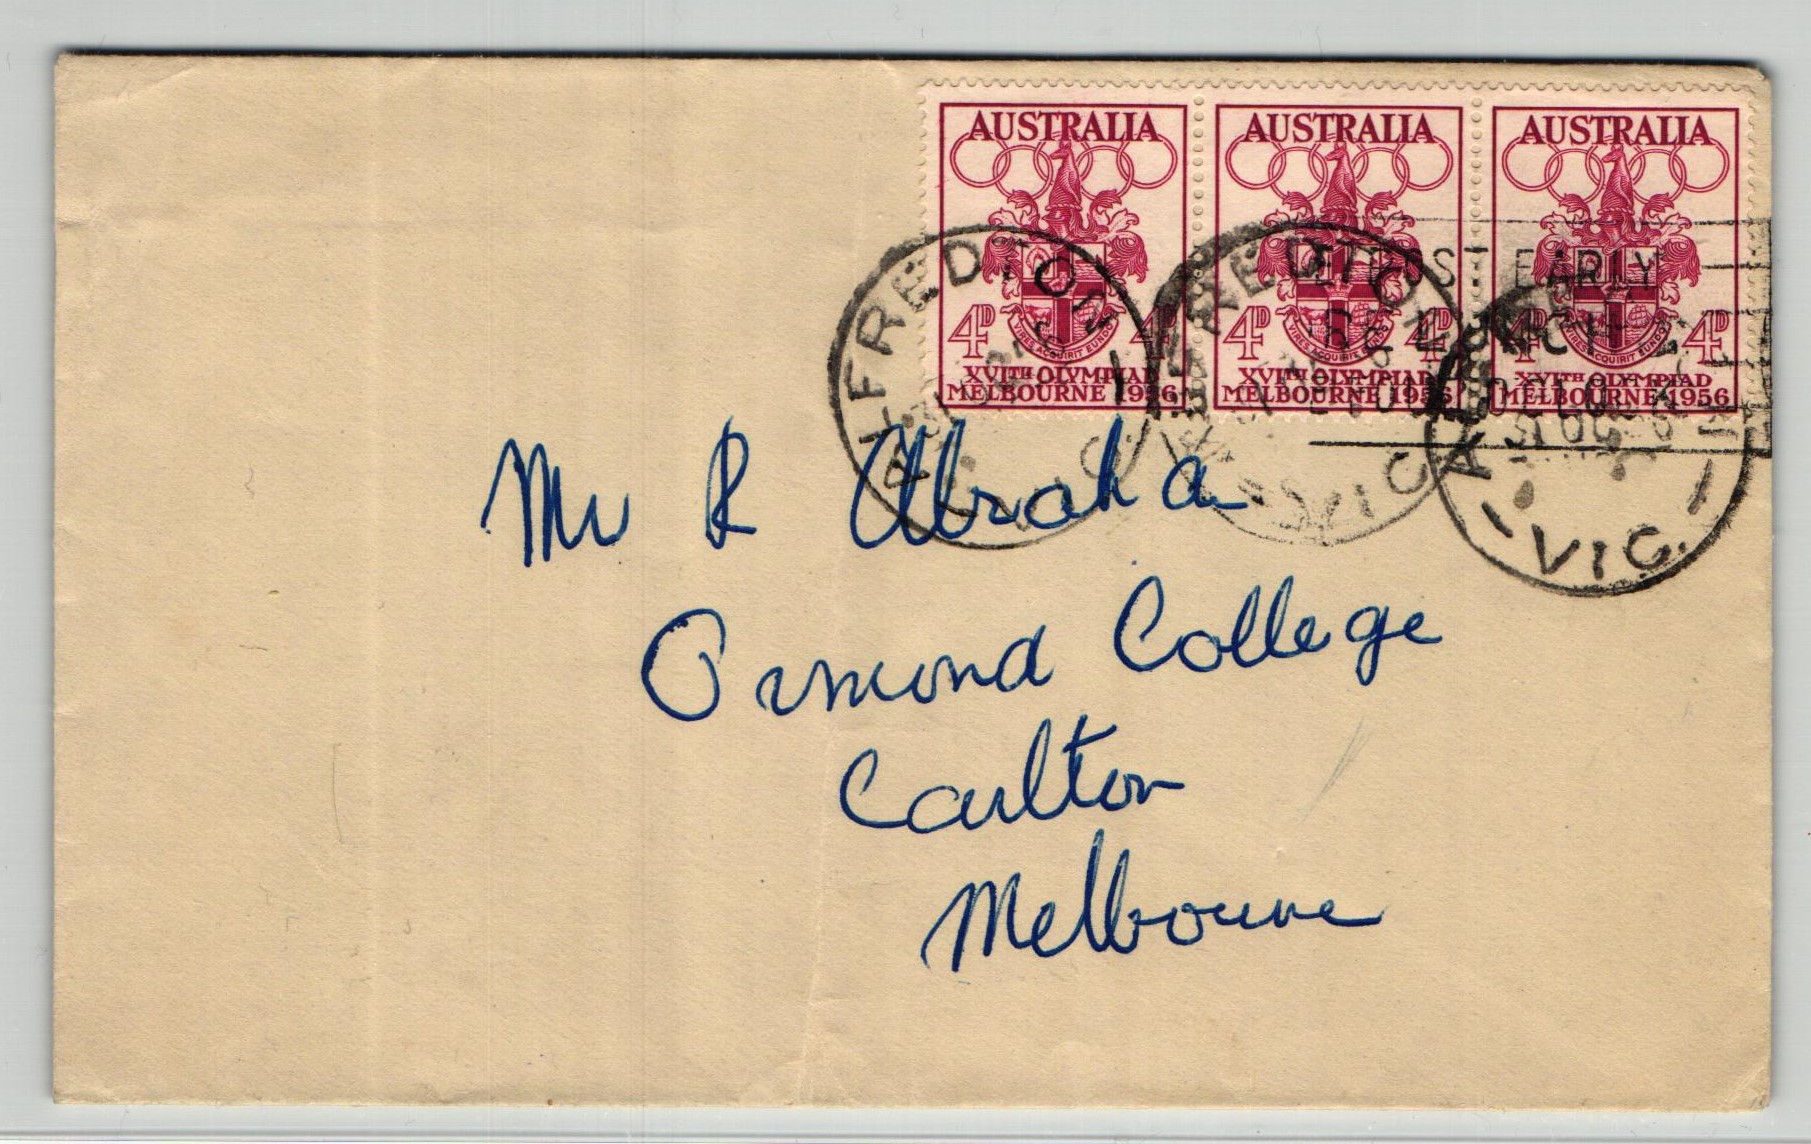 AUSTRALIA AUSTRALIA AUSTRALIA
4D 4D 4D 4D 4D 4D
VIRES ACQUIRIT EUNDO VIRES ACQUIRIT EUNDO VIRES ACQUIRIT EUNDO
XVITH OLYMPIAD XVITH OLYMPIAD XVITH OLYMPIAD
MELBOURNE 1956 MELBOURNE 1956 MELBOURNE 1956
ALFREDTON
VIC
VIC.
EARLY
Mr R Abraha
Ormond College
Carlton
Melbourne